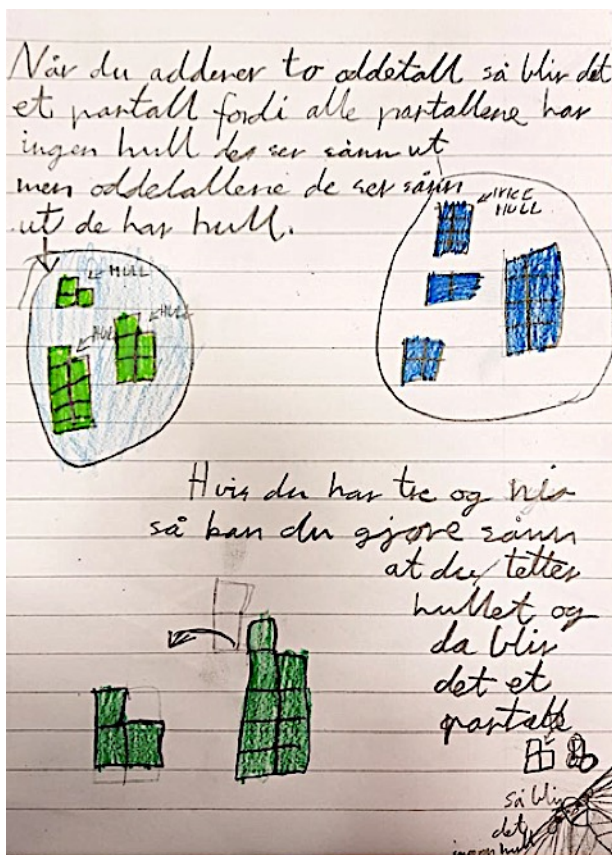 Når du adderer to oddetall så blir det
et partall fordi alle partallene har
ingen hull de ser sånn ut
men oddetallene de ser sånn
ut de har hull.
IKKE
HULL
HULL
HULL
HULL
Hvis du har tre og nie
så kan du gjøre sånn
at du tetter
hullet og
da blir
det et
partall
så blir
det
ingen hull